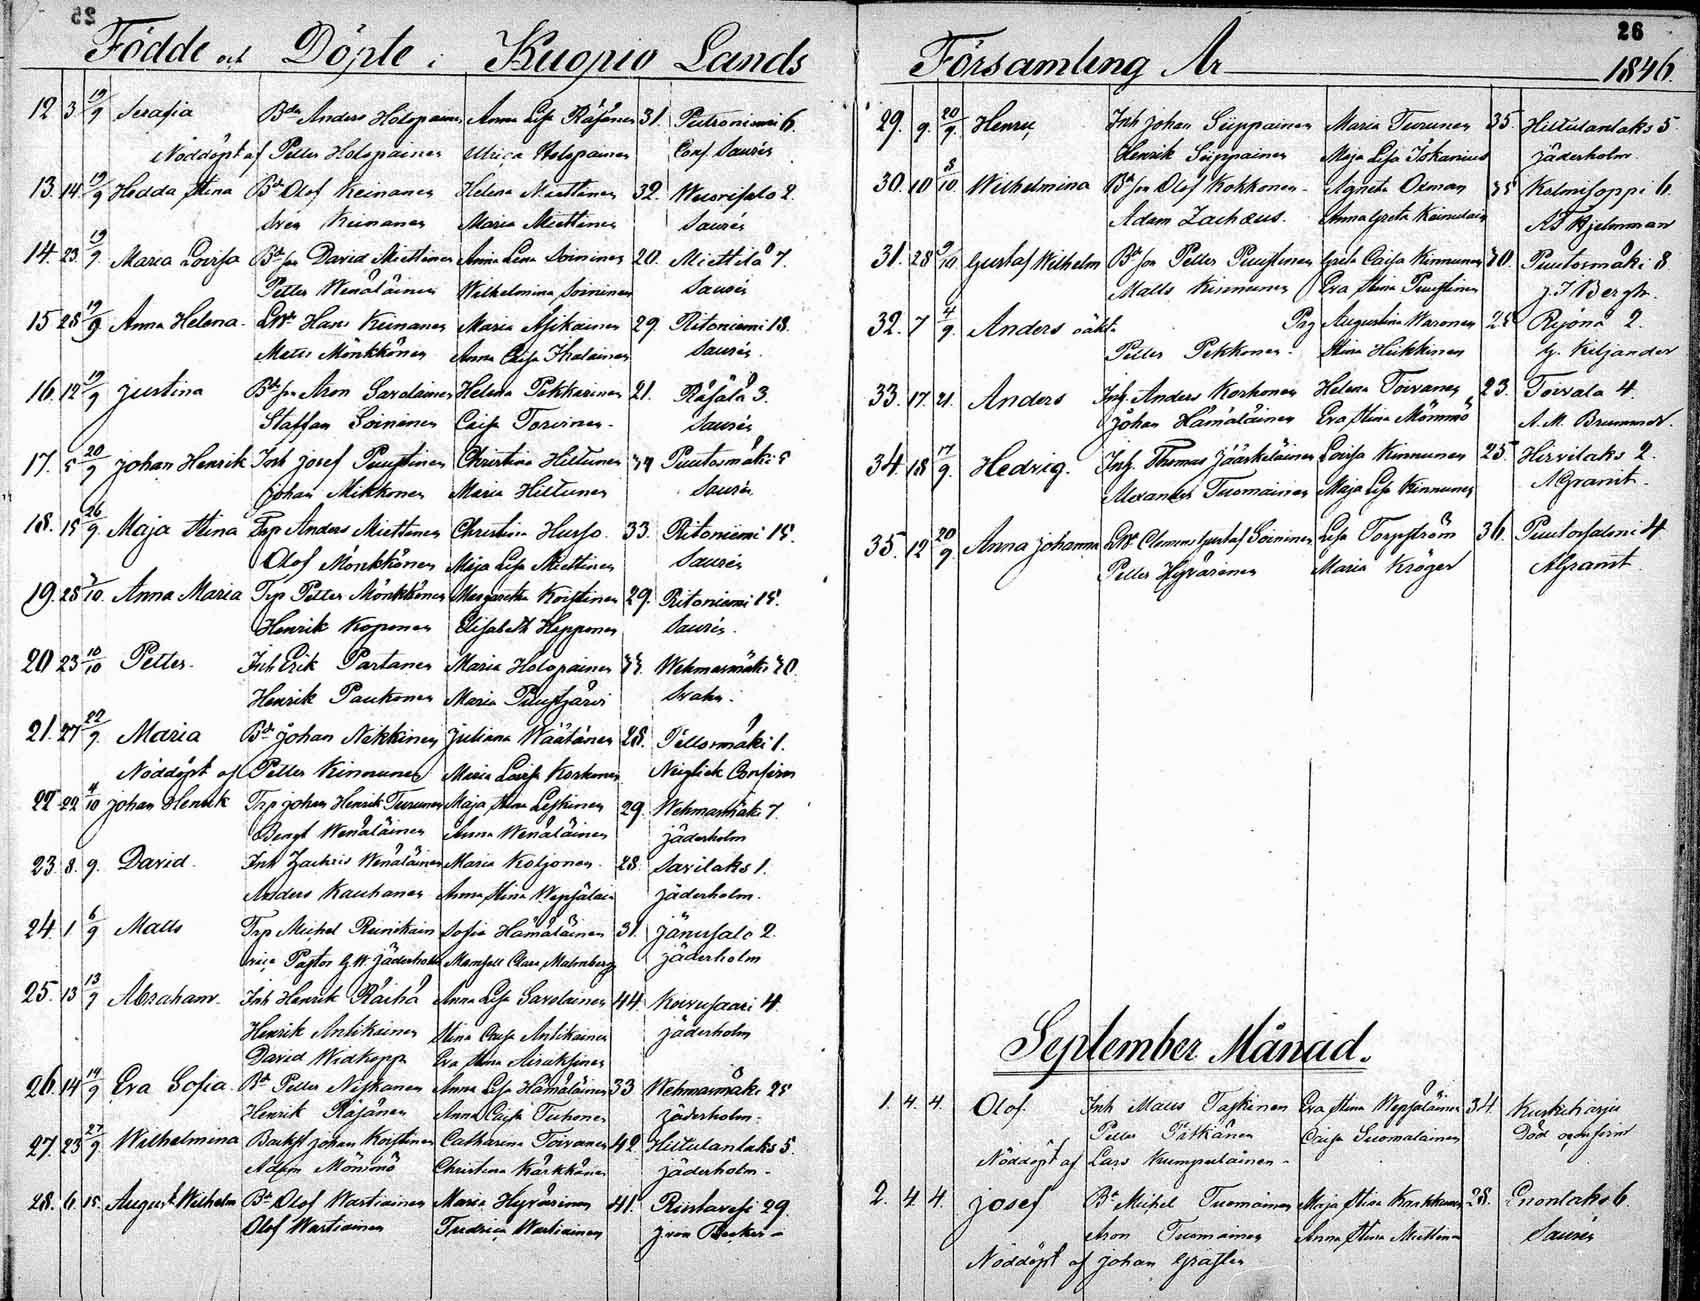 Födde och Döpte i Kuopio Lands
12 3 19/9 Serafia Bdn Anders Holopainen Anna Lisa Räsänen 31. Putroniemi 6.
Nöddöpt af Petter Holopainen Ulrica Holopainen Conf. Saurén
13. 14 19/9 Hedda Stina Bd Olof Keinanen Helena Miettinen 32. Wuorisalo 2.
Sven Keinanen Maria Miettinen Saurén
14. 23. 19/9 Maria Lovisa Bdson David Miettinen Anna Lena Soininen 20. Miettilä 7.
Petter Wenäläinen Wilhelmina Soininen Saurén
15 28 19/9 Anna Helena. Hans Keinanen Maria Asikainen 29. Ritoniemi 13.
Mats Mönkkönen Anna Caisa Ihalainen Saurén.
16. 12 19/9 Justina Bdson Aron Savolainen Helena Pekkarinen 21. Räsälä 3.
Staffan Soininen Caisa Toivinen Saurén
17. 5 20/9 Johan Henrik Inh Josef Puustinen Christina Hiltunen Puutosmäki 5
Johan Mikkonen Maria Hiltunen Saurén
18. 15 26/9 Maja Stina Trp Anders Miettinen Christina Husso. 33. Ritoniemi 15.
Olof Mönkkönen Maja Lisa Miettinen Saurén
19. 28 /10. Anna Maria Trp Petter Mönkkönen Margaretha Koistinen 29. Ritoniemi 15.
Henrik Koponen Elisabeth Hepponen Saurén.
20 23 10/10 Petter. Inh Erik Partanen Maria Holopainen Wehmasmäki
Henrik Paukonen Maria Puustjärvi Svahn.
21. 27 27/9. Maria Bd Johan Nekkinen Juliana Wäätänen 28. Pellosmäki 1.
Nöddöpt af Petter Kinnunen Maria Lovisa Korhonen Confirm
22 22 4/10 Johan Henrik Trp Johan Henrik Turunen Maja Stina Leskinen 29. Wehmasmäki 7
Bengt Wenäläinen Anna Wenäläinen Jäderholm
23. 8. 9. David. Inh Zachris Wenäläinen Maria Koljonen 28. Savilaks 1.
Anders Kauhanen Anna Stina Wepsäläin Jäderholm.
24. 1. 6/9 Matts Trp Michel Reinikain Sofia Hämäläinen 31. Jänissalo 2.
vice Pastor G.W. Jäderholm Mamsell Clara Malmberg Jäderholm
25. 13 13/9 Abraham. Inh Henrik Räihä Anna Lisa Savolainen 44. Koivusaari 4.
Henrik Antikainen Stina Caisa Antikainen Jäderholm
David Widkopp Eva Stina Airaksinen
26. 14 14/9 Eva Sofia. Bd Petter Niskanen Anna Lisa Hämäläinen 33 Wehmasmäki 25
Henrik Räsänen Anna Caisa Tuhonen Jäderholm.
27. 23 27/9 Wilhelmina Johan Koistinen Catharina Toivanen 42. Hiltulanlaks 5.
Adam Mömmö Christina Kärkkänen Jäderholm
28. 6. 15. August Wilhelm Bd Olof Wartiainen Maria Hyvärinen 41. Riistavesi 29.
Olof Wartiainen Fredrica Wartiainen J von Becker
26
Församling År 1846.
29. 9. 20/9. Henric Inh Johan Siippainen Maria Turunen 35. Hiltulanlaks 5
Henrik Siippainen Maja Lisa Jäderholm.
30. 10 8/10. Wilhelmina Bdson Olof Kokkonen Agneta Oxman 35 Kalmisoppi 6.
Adam Zachæus. Anna Greta Kainulain Hjelmman
31. 28 9/10 Gustaf Wilhelm Bdson Petter Puustinen Greta Caisa Kinnunen Puutosmäki 8
Matts Kinnunen Eva Stina Puustinen J. I Bergh.
32. 7 4/9. Anders oäkta Pig Augustina Waronen 25 Ryönä 2.
Petter Pekkonen Stina Heikkinen Kiljander
33. 17. 21. Anders Inh. Anders Korhonen Helena Toivanen 23. Toivala 4.
Johan Hämäläinen Eva Stina Mömmö A. M. Brummer.
34. 18 17/9. Hedvig. Inh. Thomas Jääskeläinen Lovisa Kinnunen 25. Hirvilaks 2.
Alexander Tuomainen Maja Lisa Kinnunen A Granit.
35. 12 20/9. Anna Johanna Clemens Gustaf Soininen Lisa Torpström 36. Puutossalmi 4
Petter Hyvärinen Maria Kröger A Granit.
September Månad.
1. 4. 4. Olof. Inh Matts Taskinen Eva Stina Wepsäläinen 34. Kurkiharju
Petter Pitkänen Caisa Suomalainen Död
Nöddöpt af Lars Kumpulainen
2. 4 4. Josef Bd Michel Tuomainen Maja Stina 28. Enonlaks 6.
Aron Tuomainen Anna Stina Miettinen Saurén
Nöddöpt af Johan Grästen